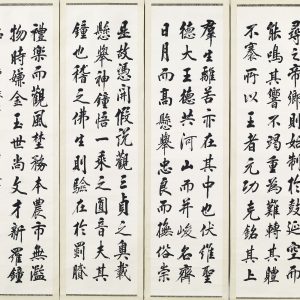 尋之帝鄉則始制於鼓延空而
能鳴其響不竭重為難轉其體
不褰所以王者元功克銘其上
羣生離苦亦在其中也伏惟聖
德大王德共河山而并峻名齊
日月而高懸舉忠良而撫俗崇
是故憑開假說觀三貞之奧載
懸舉神鐘悟一乘之圓音夫其
鐘也稽之佛生則驗在於罽膩
禮樂而觀風埜務本農市無濫
物時嫌金玉世尚文才新羅鐘